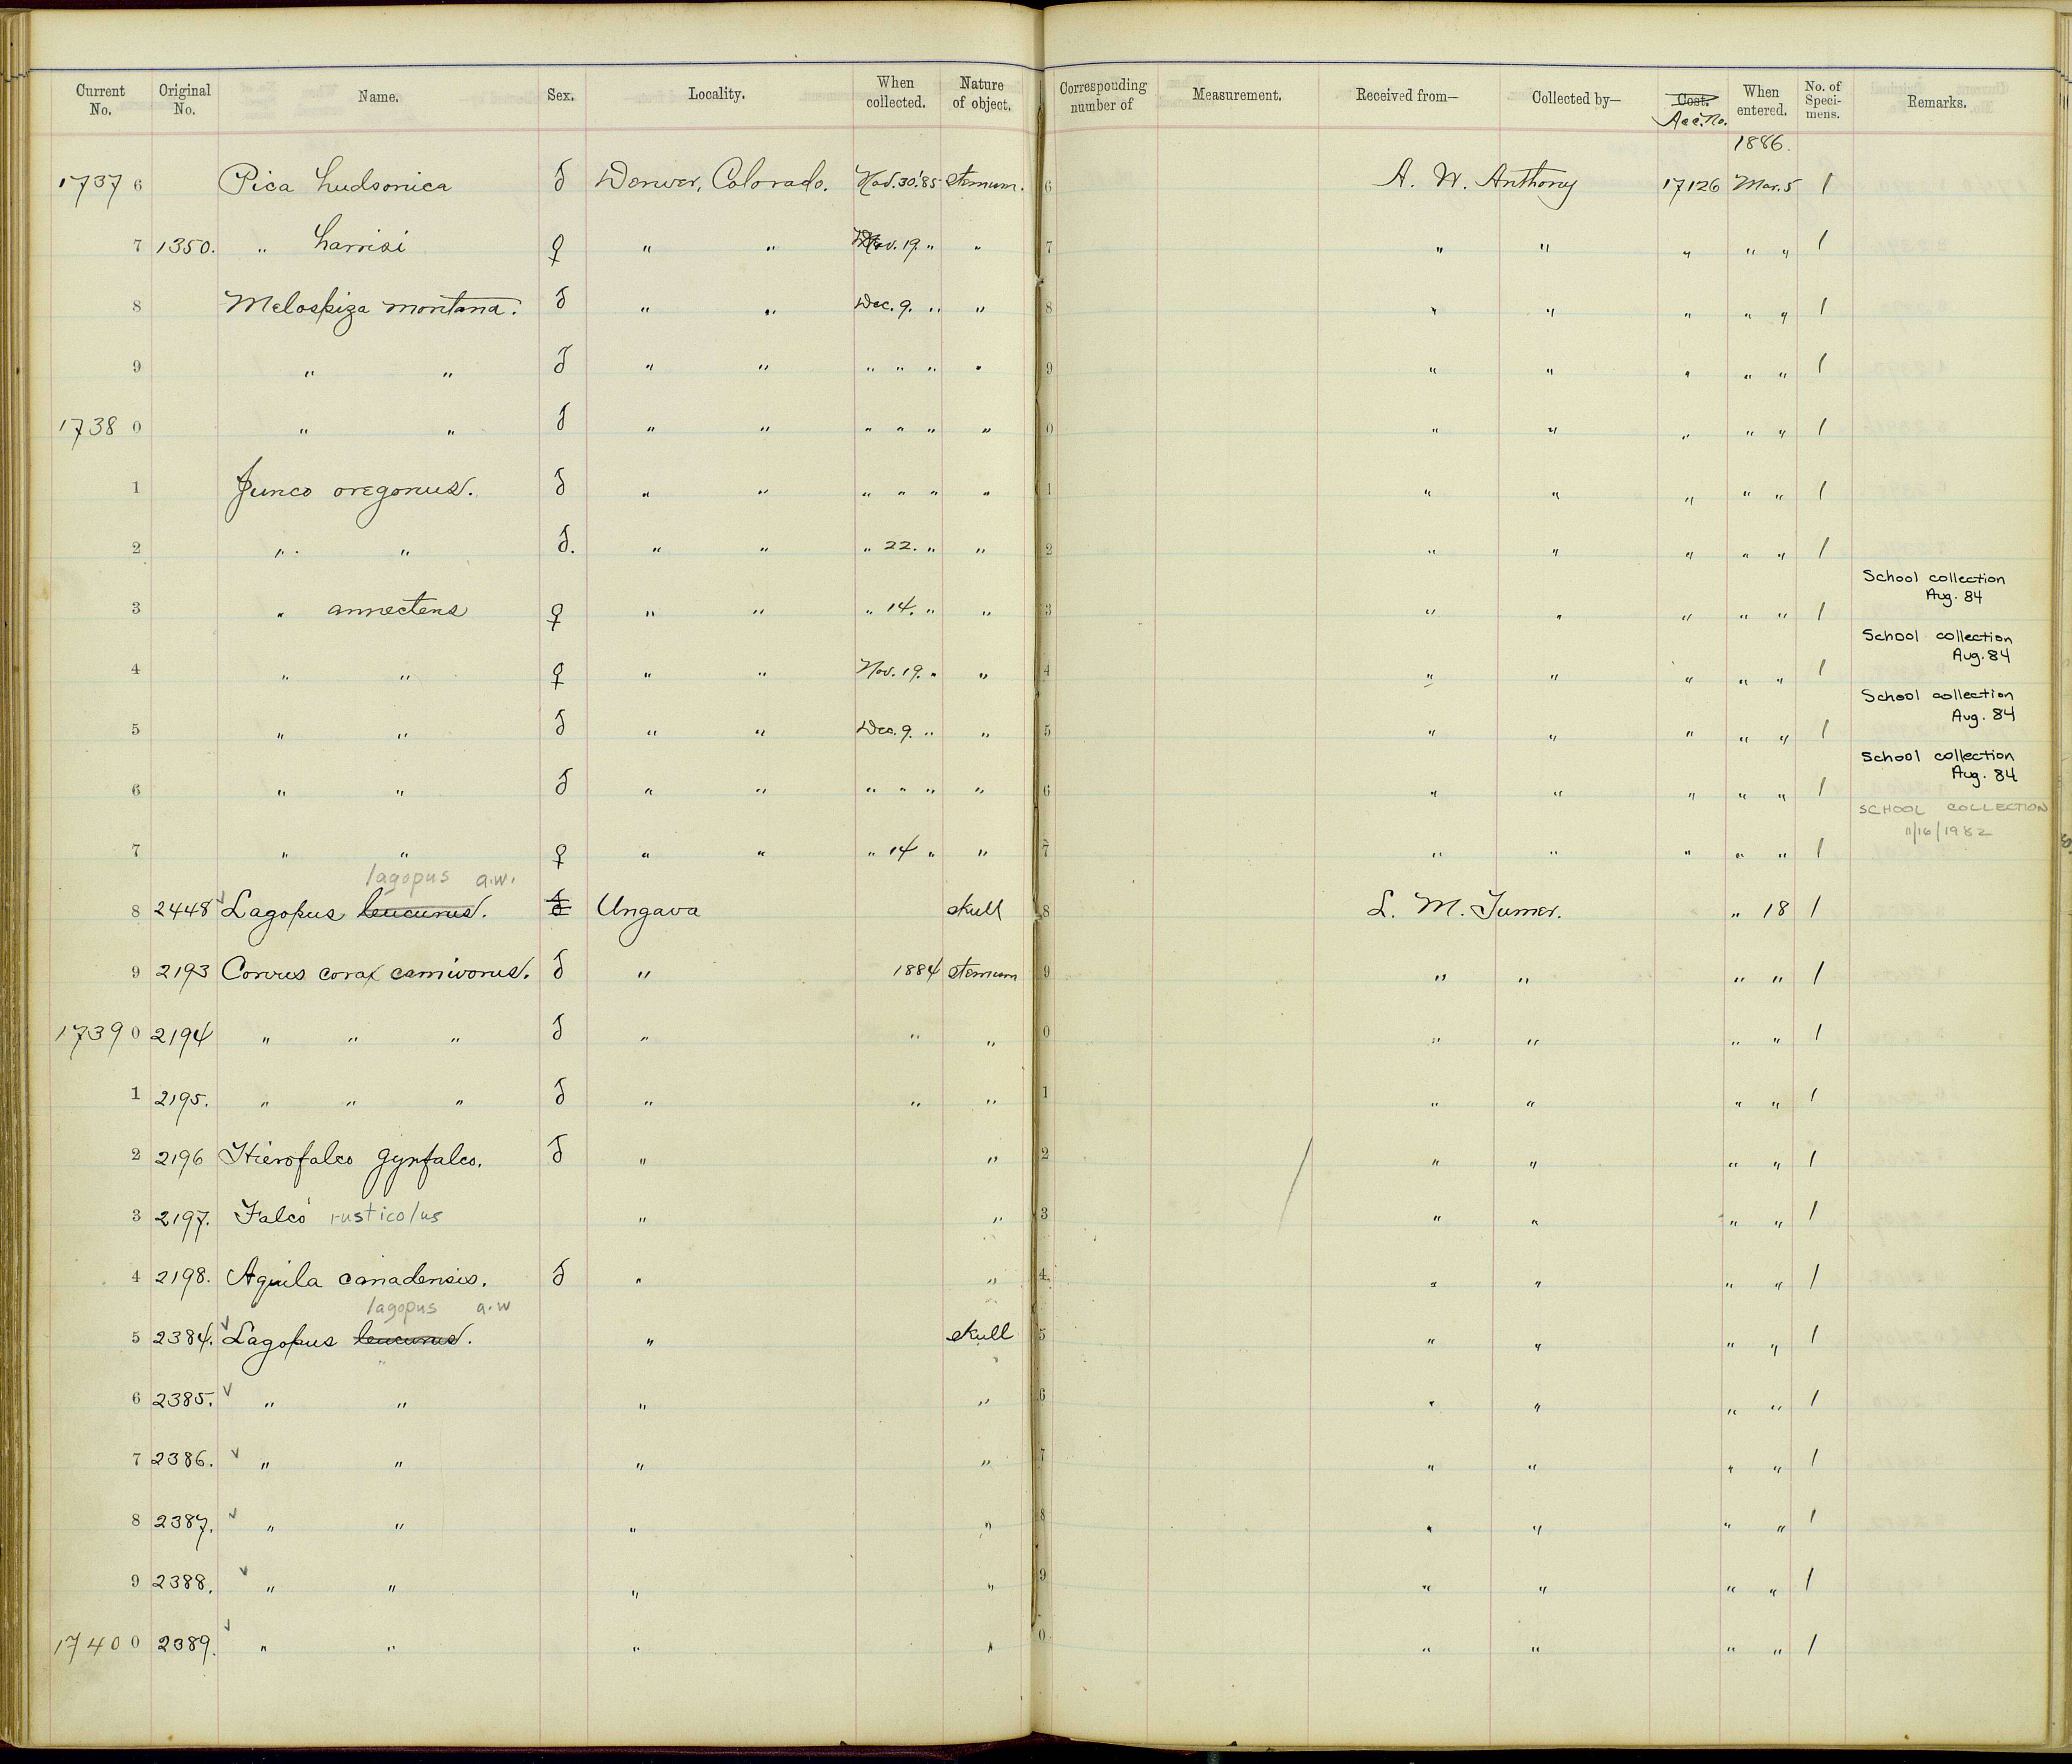 Current No. Original No. Name. Sex. Locality. When collected. Nature of object. Corresponding number of Measurement. Received from— Collected by— Cost. Acc. No. When entered. No. of Specimens. Remarks.
1886.
1737 6 Pica hudsonica ♂ Denver, Colorado. Nov. 30.'85 sternum. 6 A. W. Anthony 17126 Mar. 5 1
7 1350. " harrisi ♀ " " Nov. 19. " " 7 " " " " " 1
8 Melospiza montana. ♂ " " Dec. 9. " " 8 " " " " " 1
9 " " ♂ " " " " " " 9 " " " " " 1
1738 0 " " ♂ " " " " " " 0 " " " " " 1
1 Junco oregonus. ♂ " " " " " " 1 " " " " " 1
2 " " ♂. " " " 22. " " 2 " " " " " 1
3 " annectens ♀ " " " 14. " " 3 " " " " " 1 School collection Aug. 84
4 " " ♀ " " Nov. 19. " " 4 " " " " " 1 School collection Aug. 84
5 " " ♂ " " Dec. 9. " " 5 " " " " " 1 School collection Aug. 84
6 " " ♂ " " " " " " 6 " " " " " 1 School collection Aug. 84
7 " " ♀ " " " 14 " " 7 " " " " " 1 SCHOOL COLLECTION 11/16/1982
lagopus a.w.
8 2448 ✓ Lagopus leucurus. ♂ Ungava skull 8 L. M. Turner. " 18 1
9 2193 Corvus corax carnivorus. ♂ " 1884 sternum 9 " " " " 1
1739 0 2194 " " " ♂ " " " 0 " " " " 1
1 2195. " " " ♂ " " " 1 " " " " 1
2 2196 Hierofalco gyrfalco. ♂ " " 2 " " " " 1
3 2197. Falco rusticolus " " 3 " " " " 1
4 2198. Aquila canadensis. ♂ " " 4 " " " " 1
lagopus a.w
5 2384. ✓ Lagopus leucurus. " skull 5 " " " " 1
6 2385. ✓ " " " " 6 " " " " 1
7 2386. ✓ " " " " 7 " " " " 1
8 2387. ✓ " " " " 8 " " " " 1
9 2388. ✓ " " " " 9 " " " " 1
1740 0 2389. ✓ " " " " 0 " " " " 1